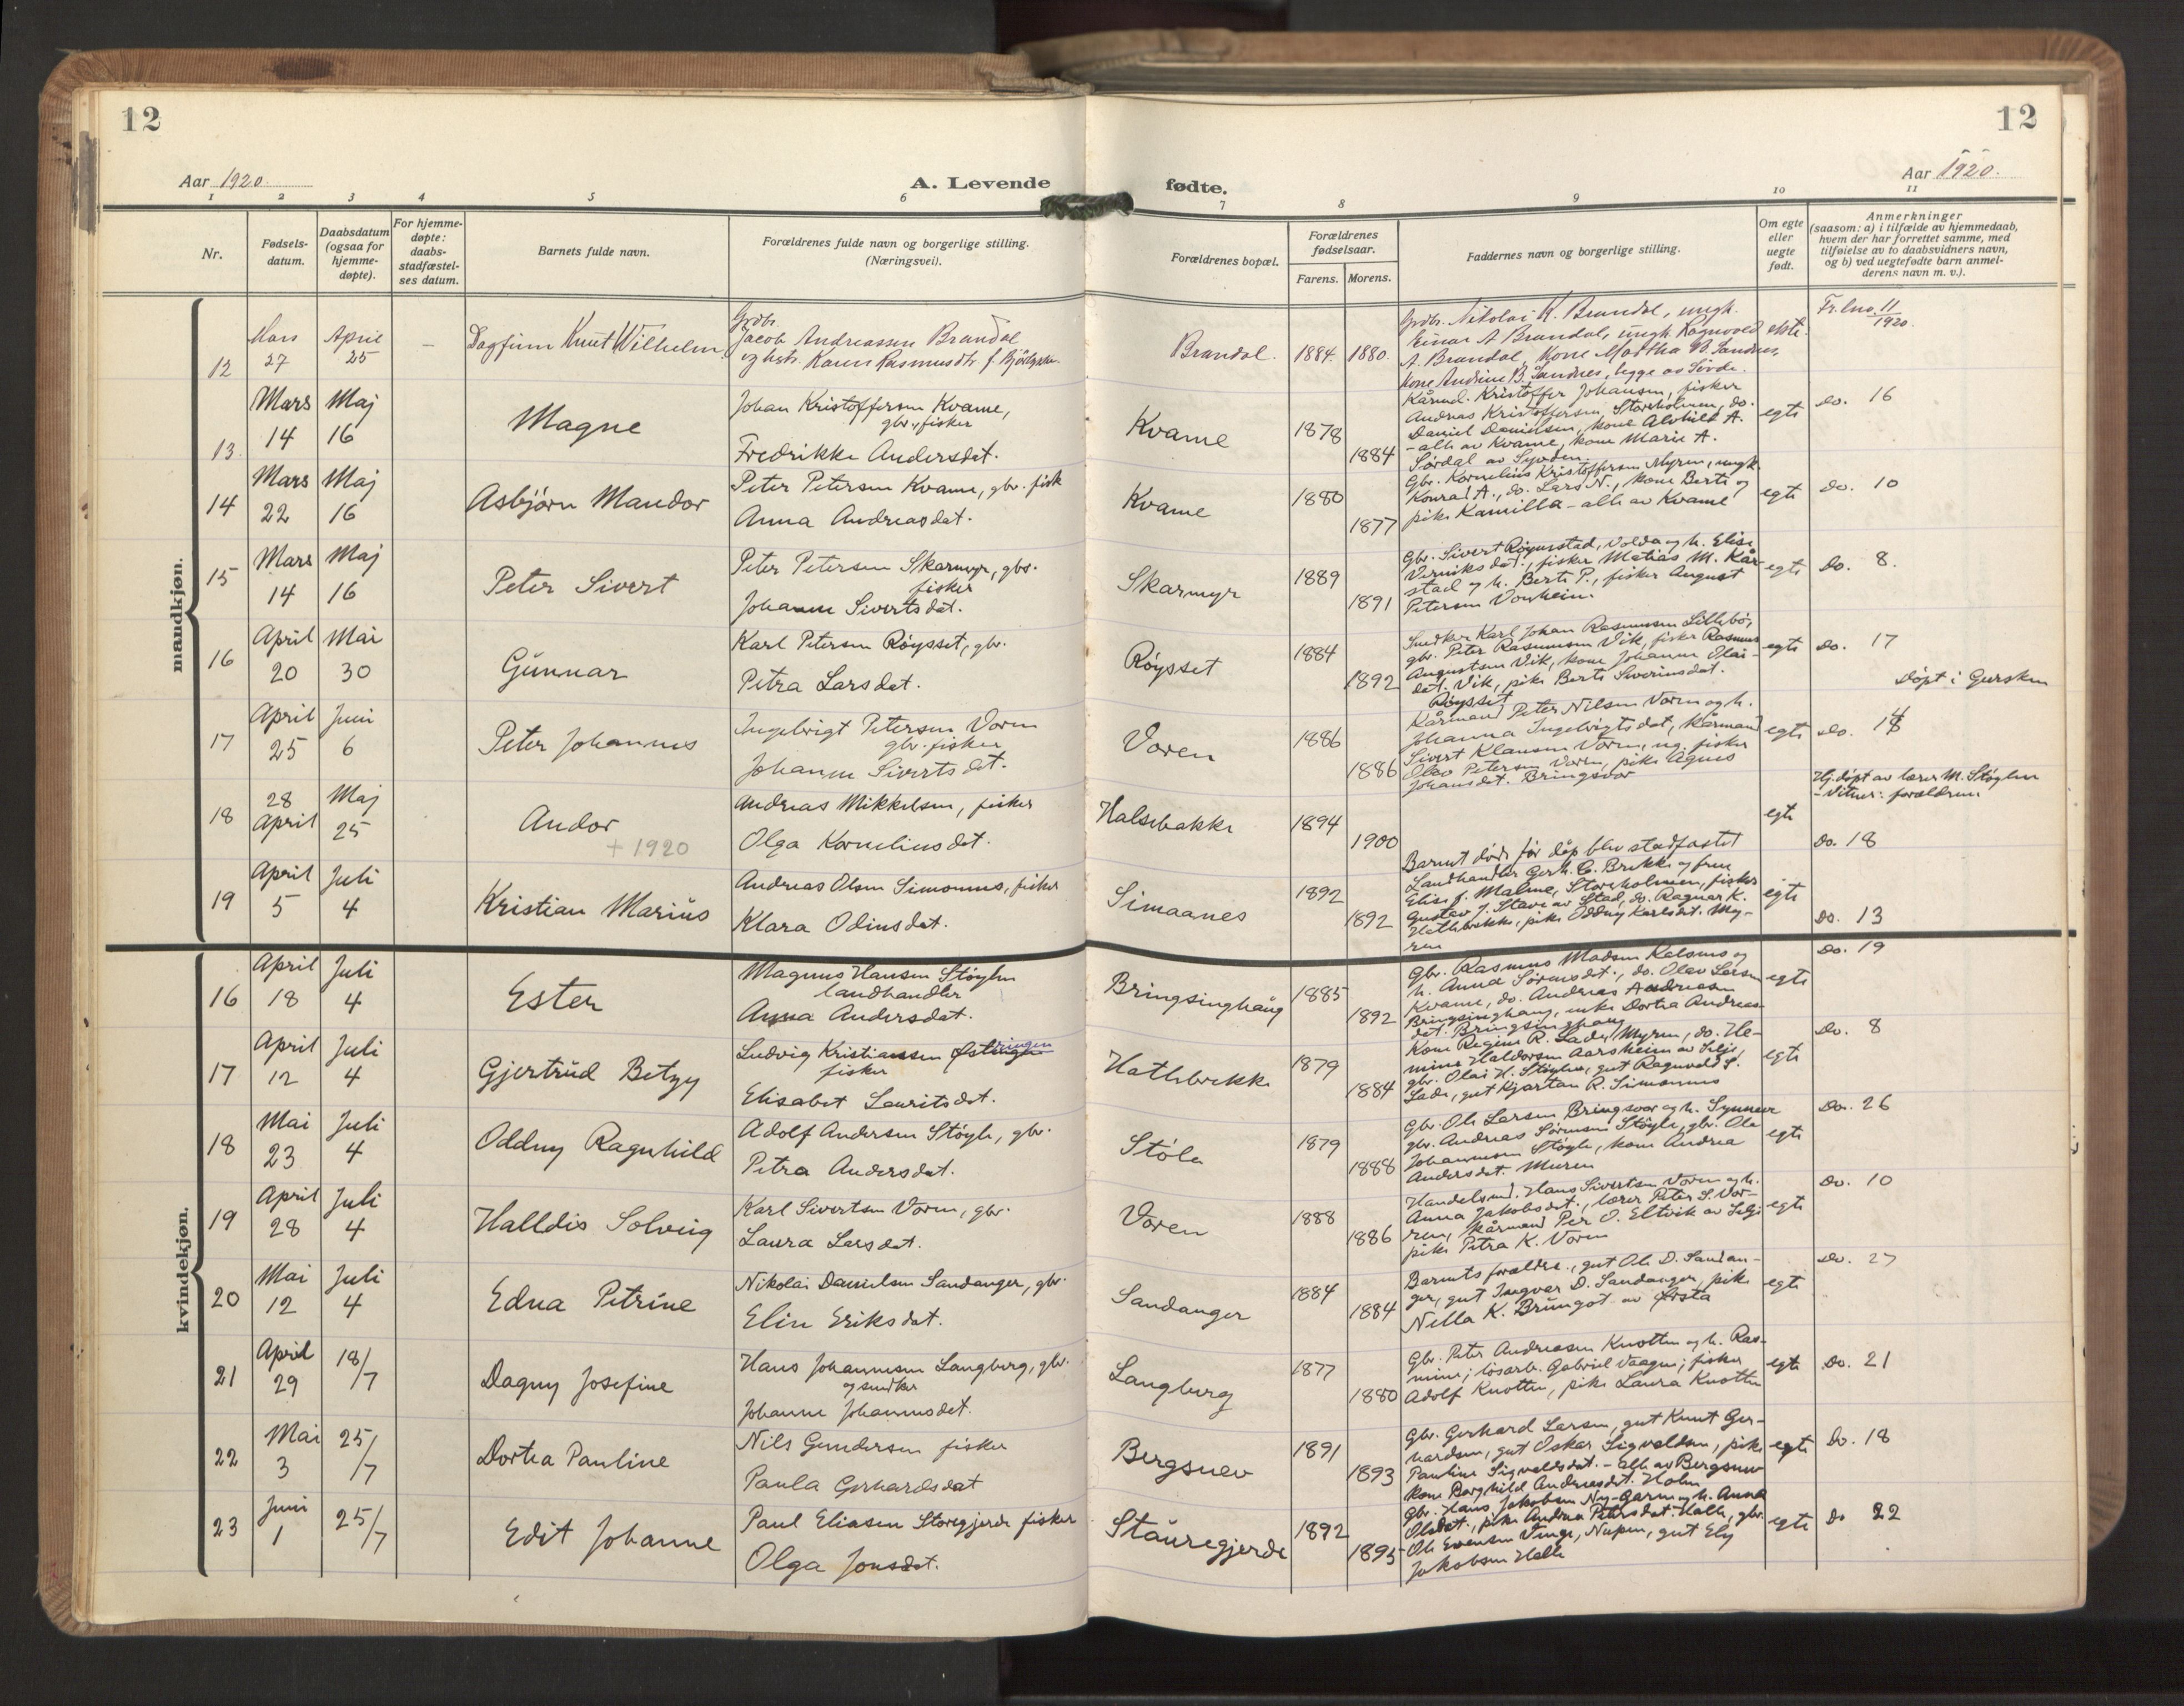 12
12
Aar 1920.
A. Levende
fødte.
Aar 1920.
1 2 3 4 5 6 7 8 9 10 11
Nr.
Fødsels-
datum.
Daabsdatum
(ogsaa for
hjemme-
døpte).
For hjemme-
døpte:
daabs-
stadfæstel-
ses datum.
Barnets fulde navn.
Forældrenes fulde navn og borgerlige stilling.
(Næringsvei).
Forældrenes bopæl.
Forældrenes
fødselsaar.
Farens. Morens.
Faddernes navn og borgerlige stilling.
Om egte
eller
uegte
født.
Anmerkninger
(saasom: a) i tilfælde av hjemmedaab,
hvem der har forrettet samme, med
tilføielse av to daabsvidners navn,
og b) ved uegtefødte barn anmel-
derens navn m. v.).
mandkjøn.
12
Mars
27
April
25
–
Dagfinn Knut Wilhelm
Grdbr.
Jacob Andreassen Brandal
og hstr. Karen Rasmusdtr f.
Brandal.
1884. 1880.
Grdbr. Nikolai K. Brandal, ungk.
Einar A Brandal, ungk. Ragnvald
A. Brandal, kone Martha B. Sandnes,
kone Andrine B. Sandnes, begge av Sövde.
ekte.
Fr. lno. 11/1920.
13
Mars
14
Maj
16
Magne
Johan Kristoffersen Kvame,
gbr., fisker
Fredrikke Andersdat.
Kvame
1878
1884
Kårmd. Kristoffer Johansen, fisker
Andreas Kristoffersen, Storeholmen, do.
Daniel Danielsen, kone Alvhild A.
– alle av Kvame, kone Marie A.
Sördal av Syvden.
egte
do. 16
14
Mars
22
Maj
16
Asbjörn Mandor
Peter Petersen Kvame, gbr. fisk
Anna Andreasdat.
Kvame
1880
1877
Gbr. Kornelius Kristoffersen Myren, ungk.
Konrad A., do. Lars N., kone Berte og
pike Kamilla – alle av Kvame
egte
do. 10
15
Mars
14
Maj
16
Peter Sivert
Peter Petersen Skarmyr, gbr.
fisker
Johanne Sivertsdat.
Skarmyr
1889
1891
Gbr. Sivert Röynestad, Volda og h. Elise
Verniksdat., fisker Matias M. Kår-
stad og h. Berte P., fisker August
Petersen Vonheim.
egte
do. 8.
16
April
20
Mai
30
Gunnar
Karl Petersen Röysset, gbr.
Petra Larsdat.
Röysset
1884
1892
Snedker Karl Johan Rasmussen Lillebö,
gbr. Peter Rasmussen Vik, fisker Rasmus
Augustsen Vik, kone Johanne Olai-
dat. Vik, pike Berte Severinsdat.
Röysset
egte
do. 17
Döpt i Gursken
17
April
25
Juni
6
Peter Johannes
Ingebrigt Petersen Voren
gbr. fisker
Johanne Sivertsdat.
Voren
1886
1886
Kårmand Peter Nilsen Voren og h.
Johanna Ingebrigtsdat, kårmand
Sivert Klausen Voren, ug. fisker
Olav Petersen Voren, pike Agnes
Johansdat. Bringsvor
egte
do.
18
28
April
Maj
25
Andor
+ 1920
Andreas Mikkelsen, fisker
Olga Korneliusdat.
Halsebakke
1894
1900
Barnet döde för dåp blev stadfæstet
egte
Hj. döpt av lærer M. Stöylen
– Vitner: forældrene
do. 18
19
April
5
Juli
4
Kristian Marius
Andreas Olsen Simonnes, fisker
Klara Odinsdat.
Simaanes
1892
1892
Landhandler Gerh. C. Brekke og frue
Elise f. Malme, Storeholmen, fisker
Gustav J. Stave av Stad, do. Ragnar K.
Hatlebrekke, pike Oddny Karlsdat. My-
ren
egte
do. 13
kvindekjøn.
16
April
18
Juli
4
Ester
Magnus Hansen Stöylen
landhandler
Anna Andersdat.
Bringsinghaug
1885
1892
Gbr. Rasmus Madsen Kalsnes og
h. Anna Sörensdat., do. Olav Larsen
Kvame, do. Andreas Andreasen
Bringsinghaug, enke Dortea Andreas-
dat. Bringsinghaug
egte
do. 19
17
April
12
Juli
4
Gjertrud Betzy
Ludvig Kristiansen
fisker
Elisabet Lauritsdat.
Hatlebrekke
1879
1884
Kone Regine R. Lade, Myren, do. He-
mine Haldorsen Aarsheim av Selje,
gbr. Olai H. Stöylen, gut Ragnvald S.
Lade, gut Kjartan R. Simonnes
egte
do. 8
18
Mai
23
Juli
4
Oddny Ragnhild
Adolf Andersen Stöyle, gbr.
Petra Andersdat.
Stöle
1879
1888
Gbr. Ole Larsen Bringsvor og h. Synnöve
gbr. Andreas Sörensen Stöyle, gbr. Ole
Johannesen Stöyle, kone Andrea
Andersdat. Muren
egte
do. 26
19
April
28
Juli
4
Halldis Solveig
Karl Sivertsen Voren, gbr.
Laura Larsdat.
Voren
1888
1886
Handelsmd. Hans Sivertsen Voren og h.
Anna Jakobsdat., lærer Peter S. Vor-
ren, kårmand Per O. Eltvik av Selje
pike Petra K. Voren
egte
do. 10
20
Mai
12
Juli
4
Edna Petrine
Nikolai Danielsen Sandanger, gbr.
Elin Eriksdat.
Sandanger
1884
1884
Barnets forældre, gut Ole D. Sandan-
ger, gut Ingvar D. Sandanger, pike
Nella K. Brungot av Örsta
egte
do. 27
21
April
29
18/7
Dagny Josefine
Hans Johannesen Langberg, gbr.
og snedker
Johanne Johannesdat.
Langberg
1877
1880
Gbr. Peter Andreasen Knotten og h. Ras-
mine; lösarb. Gabriel Vaagen; fisker
Adolf Knotten, pike Laura Knotten
egte
do. 21
22
Mai
3
25/7
Dortea Pauline
Nils Gundersen fisker
Paula Gerhardsdat
Bergsnev
1891
1893
Gbr. Gerhard Larsen, gut Knut Ger-
hardsen, gut Oskar Sigvaldsen, pike
Pauline Sigvaldsdat. – Alle av Bergsnev
kone Borghild Andreasdat. Holm
egte
do. 18
23
Juni
1
25/7
Edit Johanne
Paul Eliasen Storegjerde fisker
Olga Jonsdat.
Stauregjerde
1892
1895
Gbr. Hans Jakobsen Ny-Garen og h. Anna
Olsdat., pike Andrea Petersdat. Hatle, gbr.
Ole Evensen Tunge, Nupen, gut Ely
Jakobsen Hatle
egte
do 22